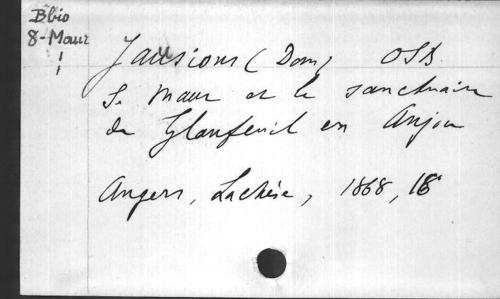 Bbio
8-Maur
Jausions (Dom) OSB
S. Maur et le sanctuaire
de Glanfeuil en Anjou
Angers, Lachèse, 1868, 18°